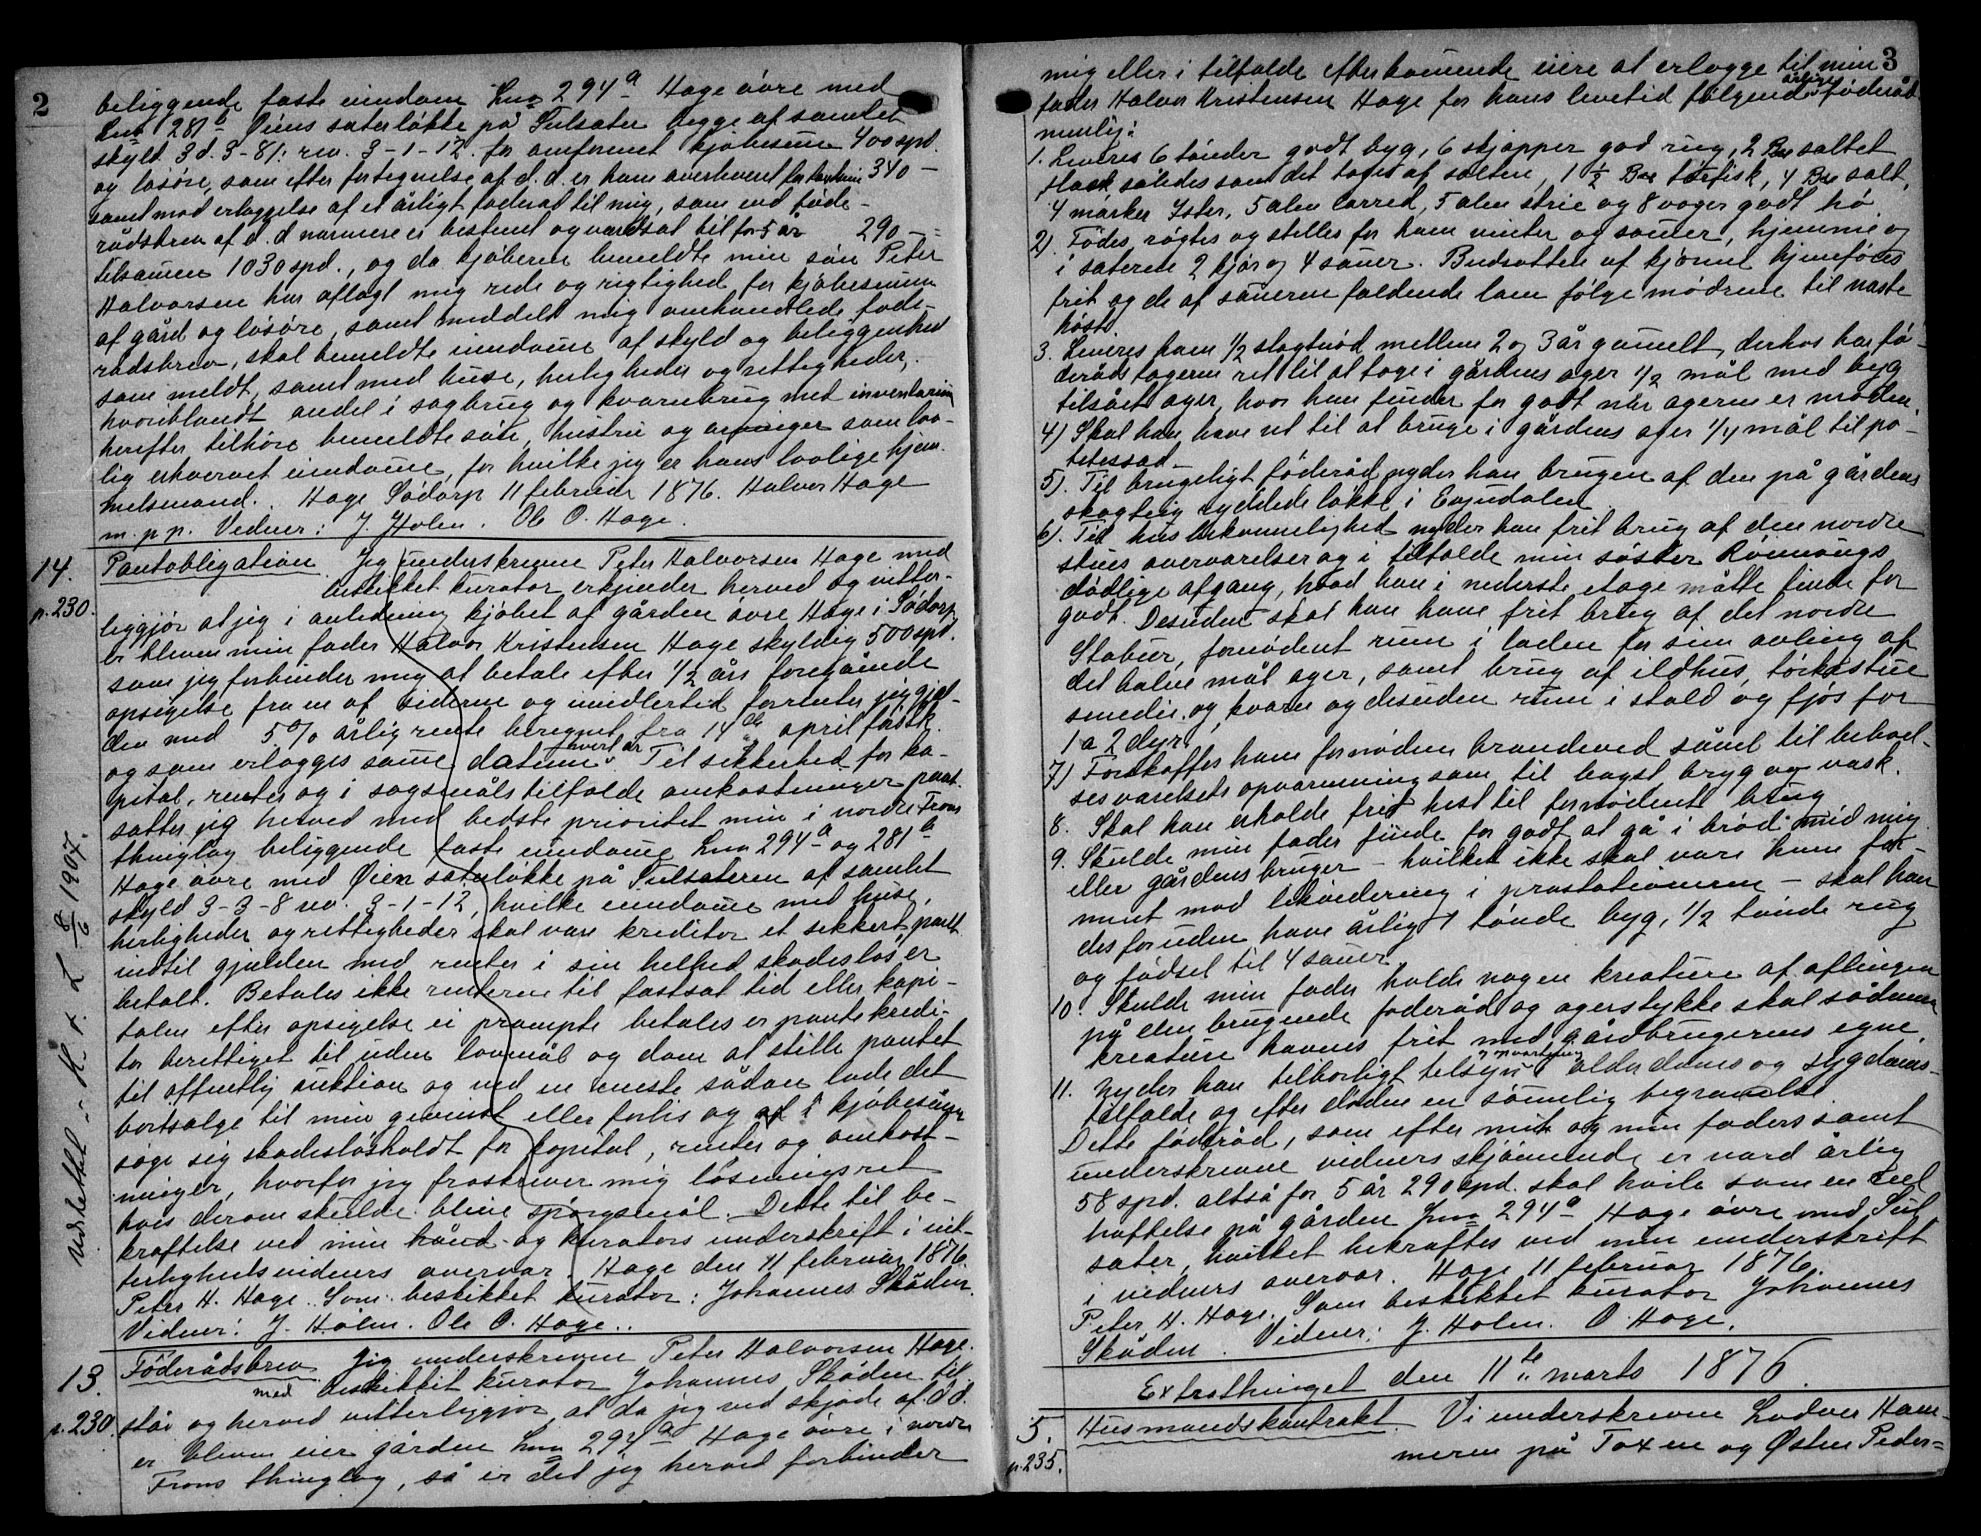 2
beliggende faste eiendom Lno 294a Hage øvre med
Lno 281b Øiens sæterløkke på Sulsæter begge af samlet
skyld 3 d. 3-8 /: rev. 3-1-12 for omforenet kjøbesum 400 spd.
og løsøre, som efter fortegnelse af d. d. er ham overleveret for 340 —
samt mod erlæggelse af et årligt føderåd til mig, som ved føde-
rådsbrev af d. d nærmere er bestemt og værdsat til for 5 år 290 — =
tilsammen 1030 spd., og da kjøberen bemeldte min søn Peter
Halvorsen har aflagt mig rede og rigtighed for kjøbesummen
af gård og løsøre, samt meddelt mig omhandlede føde-
rådsbrev, skal bemeldte eiendomme af skyld og beliggenhed
som meldt, samt med huse, herligheder og rettigheder,
hvoriblandt andel i sagbrug og kvernbrug med inventarium
herefter tilhøre bemeldte søn, hustru og arvinger som lov-
lig erhvervet eiendomme, for hvilke jeg er hans lovlige hjem-
melsmand. Hage Sødorp 11 februar 1876. Halvor Hage
m. p. p. Vidner: J. Holen. Ole O. Hage.
14. Pantobligation. Jeg underskrevne Peter Halvorsen Hage med
beskikket kurator erkjender herved og vitter-
p. 230. liggjør at jeg i anledning kjøbet af gården øvre Hage i Sødorp
er bleven min fader Halvor Kristensen Hage skyldig 500 spd.
som jeg forbinder mig at betale efter 1/2 års foregående
opsigelse fra en af siderne og imidlertid forrenter jeg gjæl-
den med 5% årlig rente beregnet fra 14de april førstk.
og som erlægges samme datum hvert år. Til sikkerhed for ka-
pital, renter og i søgsmålstilfælde omkostninger pant-
sætter jeg herved med bedste prioritet min i nordre Frons
thinglag beliggende faste eiendomme Lno 294a og 281b
Hage øvre med Øien sæterløkke på Sulsæteren af samlet
skyld 3-3-8 rev. 3-1-12, hvilke eiendomme med huse,
herligheder og rettigheder skal være kreditor et sikkert pant
indtil gjælden med renter i sin helhed skadesløs er
betalt. Betales ikke renterne til fastsat tid eller kapi-
talen efter opsigelse ei prompte betales er pantekredi-
tor berettiget til uden lovmål og dom at stille pantet
til offentlig auktion og ved en eneste sådan lade det
bortsælge til min gevinst eller forlis og af kjøbesummen
søge sig skadesløsholdt for kapital, renter og omkost-
ninger, hvorfor jeg fraskriver mig løsningsret
hvis derom skulde blive spørgsmål. Dette til be-
kræftelse ved min hånd og kurators underskrift i vit-
terlighedsvidners overvær. Hage den 11 februar 1876.
Peter H. Hage. Som beskikket kurator: Johannes Skåden.
Vidner: J. Holen. Ole O. Hage.
Udslettet - . K. r. L 8/6 1907.
13. Føderådsbrev. Jeg underskrevne Peter Halvorsen Hage
med beskikket kurator Johannes Skåden til-
p. 230. står og herved vitterliggjør, at da jeg ved skjøde af d d.
er bleven eier gården Lno 294a Hage øvre i nordre
Frons thinglag, så er det jeg herved forbinder
3
mig eller i tilfælde efterkommende eiere at erlægge til min
fader Halvor Kristensen Hage for hans levetid følgende årlige føderåd
nemlig:
1. Leveres 6 tønder godt byg, 6 skjæpper god rug, 2 saltet
således som det tages af salten, 1 1/2 tørfisk, 4 salt,
4 marker Ister, 5 alen lærred, 5 alen strie og 8 voger godt hø.
2) Fødes, røgtes og stelles for ham vinter og sommer, hjemme og
i sæterne 2 kjør og 4 sauer. Budsotten af kjørne hjemføres
frit og de af sauerne faldende lam følge mødrene til næste
høst.
3. Leveres ham 1/2 slagtnød mellem 2 og 3 år gammelt, derhos har fø-
derådstageren ret til at tage i gårdens ager 1/2 mål med byg
tilsået ager, hvor han finder for godt når ageren er moden.
4) Skal han have ret til at bruge i gårdens ager 1/4 mål til po-
tetessæd.
5). Til brugeligt føderåd nyder han brugen af den på gårdens
skogteig ryddede løkke i Eijundalen
6). Til husbekvemmelighed nyder han frit brug af den nordre
stues overværelser og i tilfælde min søster Rønnaugs
dødlige afgang, hvad han i nederste etage måtte finde for
godt. Desuden skal han have frit brug af det nordre
Stabur, fornødent rum i laden for sin avling af
det halve mål ager, samt brug af ildhus, tørkestue
smedie og kværn og desuden rum i stald og fjøs for
1 a 2 dyr.
7) Forskaffes ham fornøden brændeved såvel til beboel-
sesværelsets opvarmning som til bagst bryg og vask.
8. Skal han erholde frit hest til fornødent brug
9. Skulde min fader finde for godt at gå i brød med mig
eller gårdens bruger – hvilket ikke skal være ham for-
ment mod likvidering i præstationerne – skal han
desforuden have årlig 1 tønde byg, 1/2 tønde rug
og fødsel til 4 sauer
10. Skulde min fader holde nogen kreature af aflingen
på den brugende føderåd og agerstykke skal sådanne
kreature havnes frit med gårdbrugerens egne.
11. Nyder han tilbørligt tilsyn i alderdoms og sygdoms-
tilfælde og efter døden en sømmelig begravelse
Dette føderåd, som efter mit og min faders samt
underskrevne vidners skjønnende er værd årlig
58 spd. altså for 5 år 290 spd. skal hvile som en reel
heftelse på gården Lno 294a Hage øvre med Sul-
sæter, hvilket bekræftes ved min underskrift
i vidners overvær. Hage 11 februar 1876.
Peter H. Hage. Som beskikket kurator Johannes
Skåden. Vidner: J. Holen. O. Hage.
Extrathinget den 11te marts 1876.
5. Husmandskontrakt. Vi underskrevne Lodver Ham-
p. 235. meren på Toxen og Østen Peder=